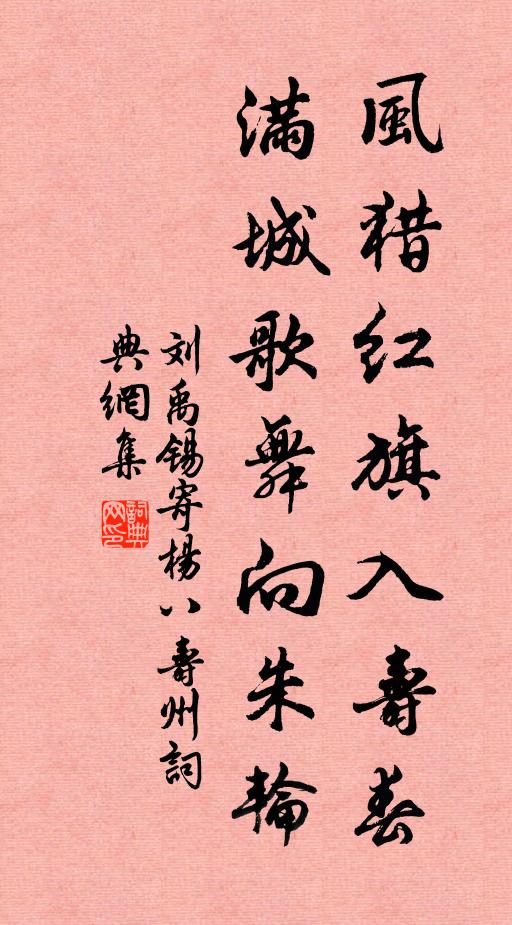 風猎红旗入壽春
滿城歌舞向朱輪
刘禹锡寄楊八壽州詞
典網集
詞典网印